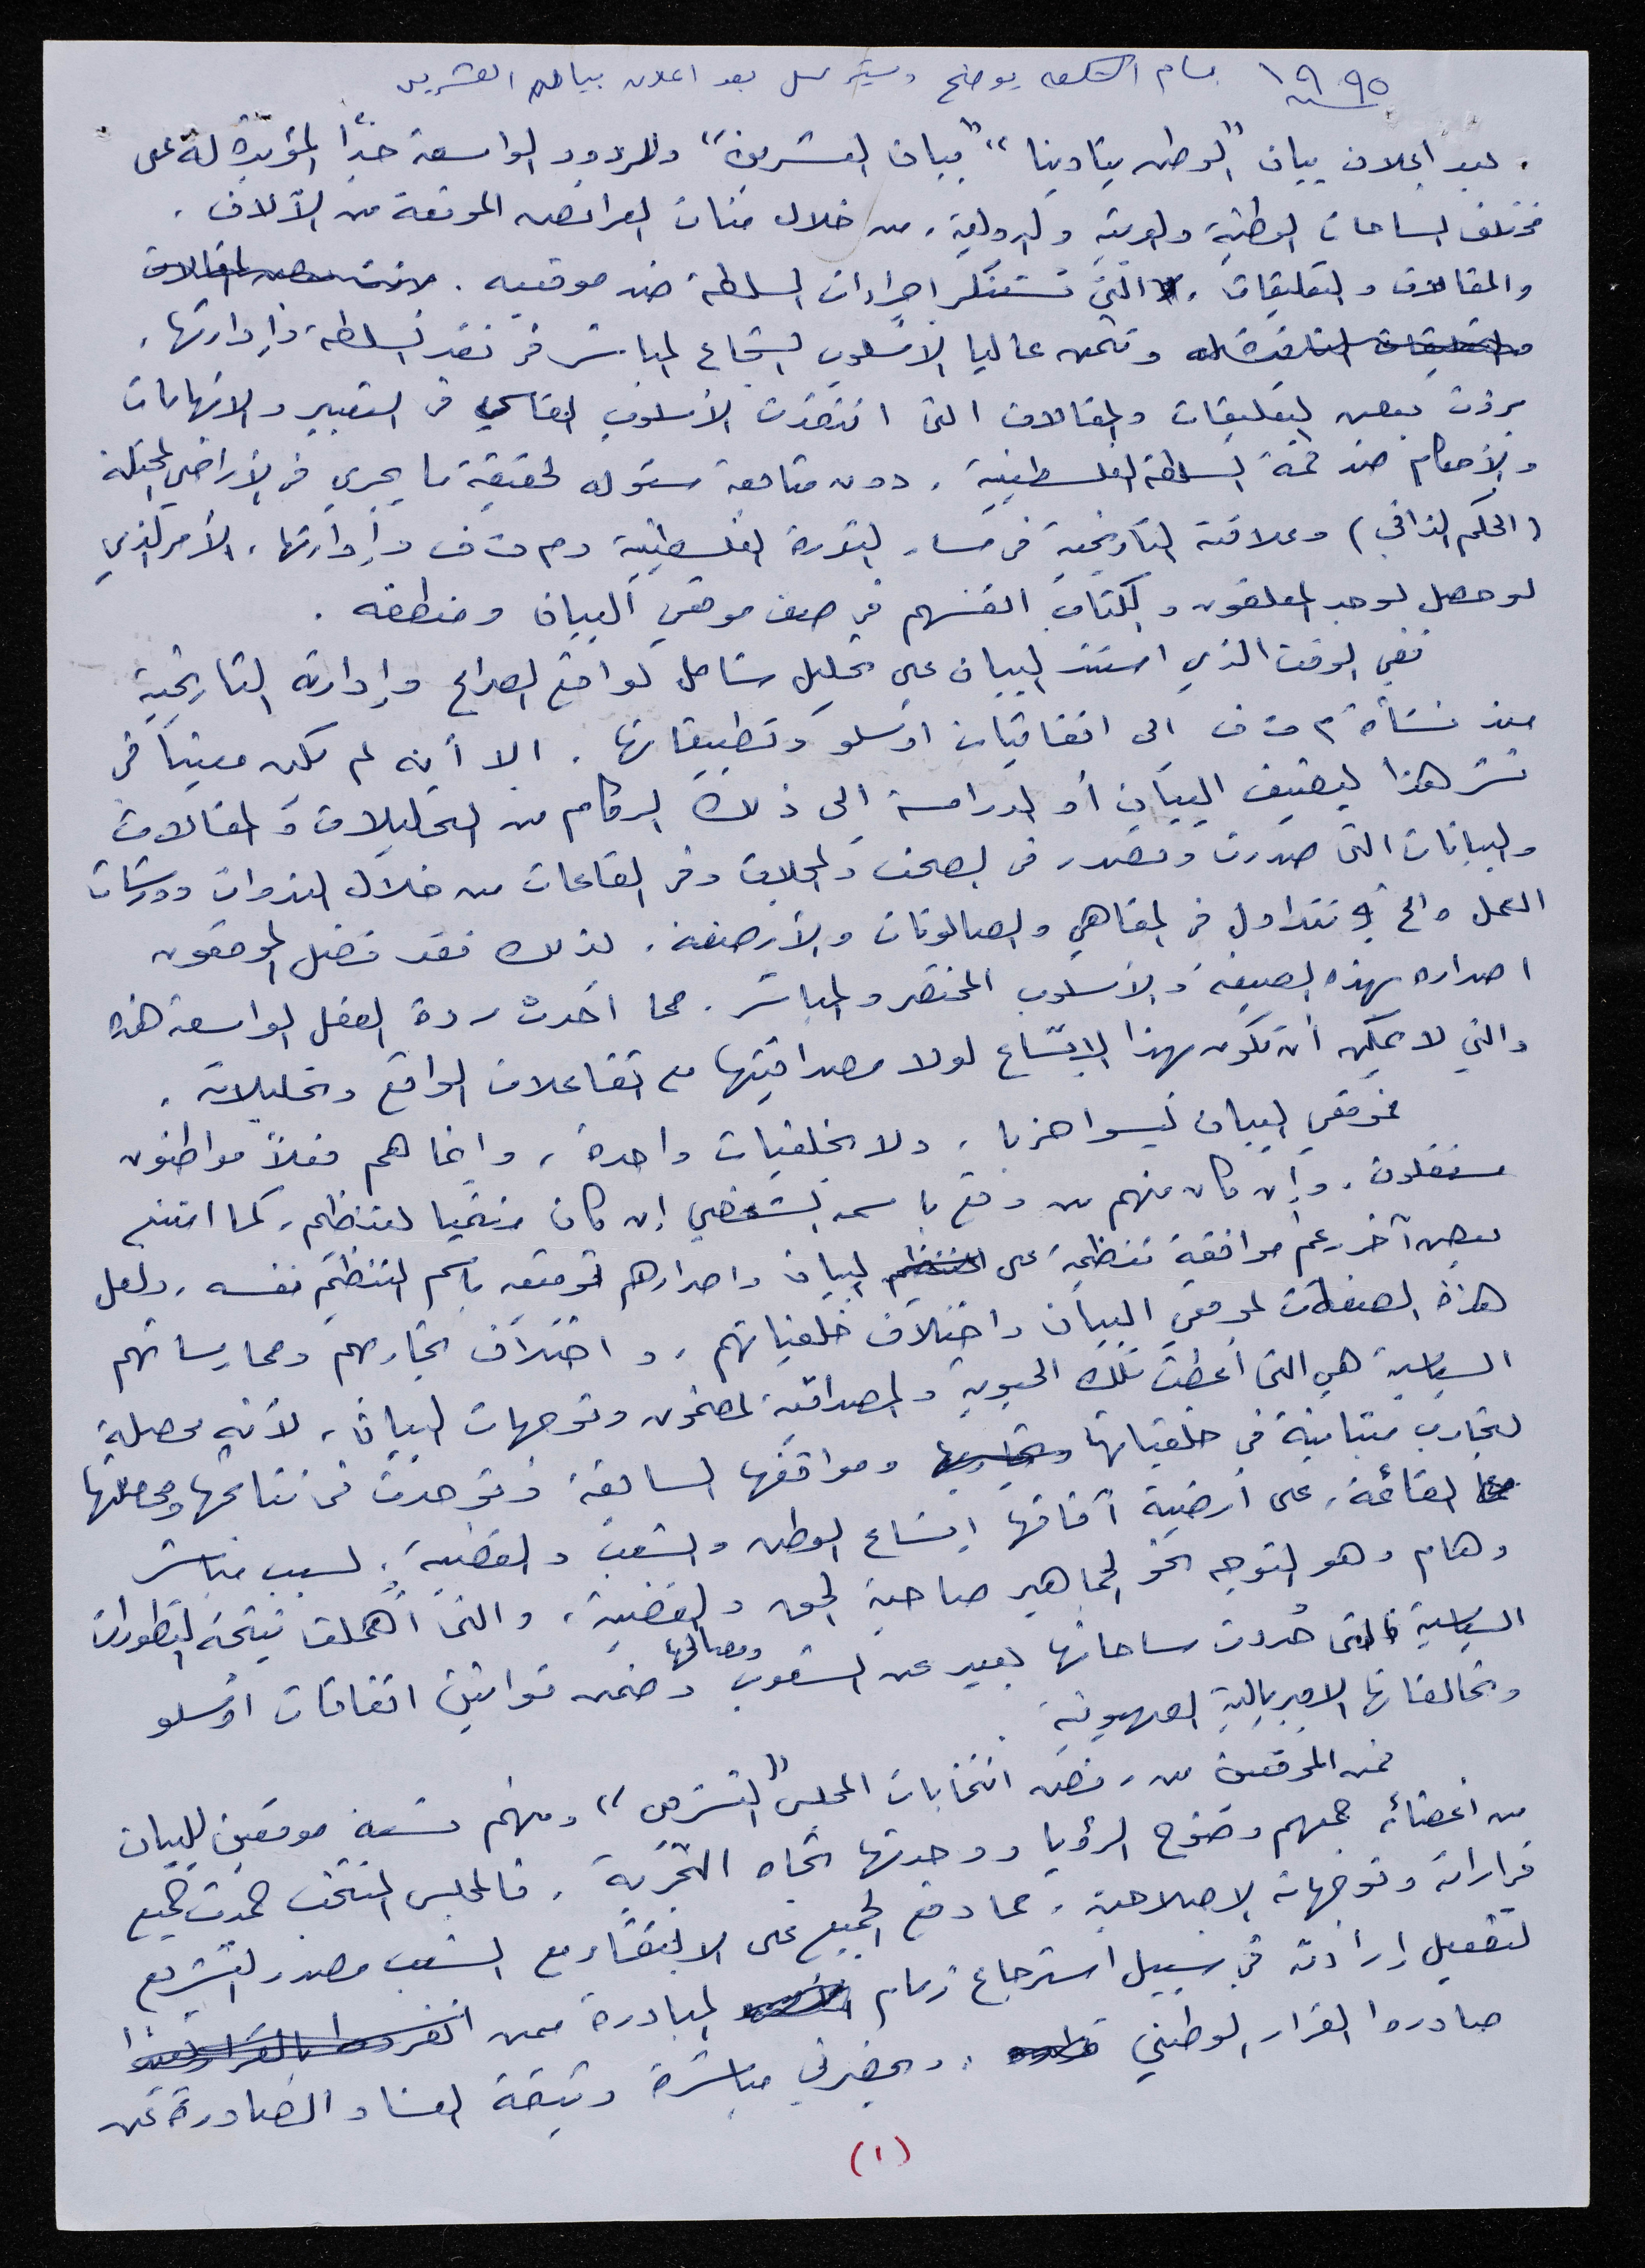 ١٩٩٥ بسام الشكعه يوضح وسيتر سل بعد اعلان بيان العشرين
. بعد إعلان بيان "الوطن ينادينا" "بيان العشرين" والردود الواسعة جداً المؤيدة له على
مختلف الساحات الوطنية والعربية والدولية، من خلال مئات العرائض الموقعة من الآلاف.
والمقالات والتعليقات، التي تستنكر اجراءات السلطة ضد موقعيه.
وتثمن عاليا الأسلوب الشجاع المباشر في نقد السلطة وإدارتها،
برزت بعض التعليقات والمقالات التي انتقدت الأسلوب القاسي في التعبير والاتهامات
والأحكام ضد قمة السلطة الفلسطينية، دون متابعة سئوله لحقيقة ما يجري في الأراضي المحتلة
(الحكم الذاتي) وعلاقته التاريخية في مسار الثورة الفلسطينية و م ت ف وإدارتها، الأمر الذي
لو حصل لوجد المعلقون والكتاب انفسهم في صف موقعي البيان ومنطقه.
ففي الوقت الذي استند البيان على تحليل شامل لواقع الصراع وإدارته التاريخية
منذ نشأة م ت ف الى اتفاقيات اوسلو وتطبيقاتها. الا أنه لم يكن معنياً في
نشر هذا ليضيف البيان أو الدراسة إلى ذلك الركام من التحليلات والمقالات
والبيانات التي صدرت وتصدر في الصحف والمجلات وفي القاعات من خلال الندوات وورشات
العمل والتي تتداول في المقاهي والصالونات والأرصفة. لذلك فقد فضل الموقعون
اصداره بهذه الصيغة والأسلوب المختصر والمباشر. مما أحدث ردة الفعل الواسعة هذه
والتي لا يمكن أن تكون بهذا الاتساع لولا مصداقيتها مع تفاعلات الواقع وتحليلاته.
فموقعي البيان ليسوا حزبا، ولا بخلفيات واحدة، وانما هم فعلاً مواطنون
مستقلون، وإن كان منهم من وقع باسمه الشخصي إن كان منتميا لتنظيم، كما امتنع
بعض آخر رغم موافقة تنظيمية على البيان واصدارهم توقيعه باسم التنظيم نفسه، ولعل
هذه الصفات لموقعي البيان واختلاف خلفياتهم، واختلاف تجاربهم وممارساتهم
السياسية هي التي أعطت تلك الحيوية والمصداقية لمضمون وتوجهات البيان، لأنه محصلة
لتجارب متباينة في خلفياتها ومواقفها السابقة وتوحدت في نتائجها ومحصلتها
القائمة، على أرضية آفاقها اتساع الوطن والشعب والقضية، لسبب مباشر
وهام وهو التوجه نحو الجماهير صاحبة الحق والقضية، والتي اهملت نتيجة التطورات
السياسية التي حُددت ساحاتها بعيد عن الشعوب ومصالحها وضمن قوانين اتفاقات اوسلو
وتحالفاتها الامبريالية الصهيونية.
فمن الموقعين من رفض انتخابات المجلس "التشريعي" ومنهم تسعة موقعين للبيان
من اعضائه جمعهم وضوح الرؤيا ووحدتها تجاه التجربة. فالمجلس المنتخب جمدت جميع
قراراته وتوجهاته الاصلاحية، مما دفع الجميع على الالتقاء مع الشعب مصدر التشريع
لتفعيل إرادته في سبيل استرجاع زمام المبادرة ممن
صادروا القرار الوطني. ويحضرني مباشرة وثيقة الفساد الصادرة عن
(١)